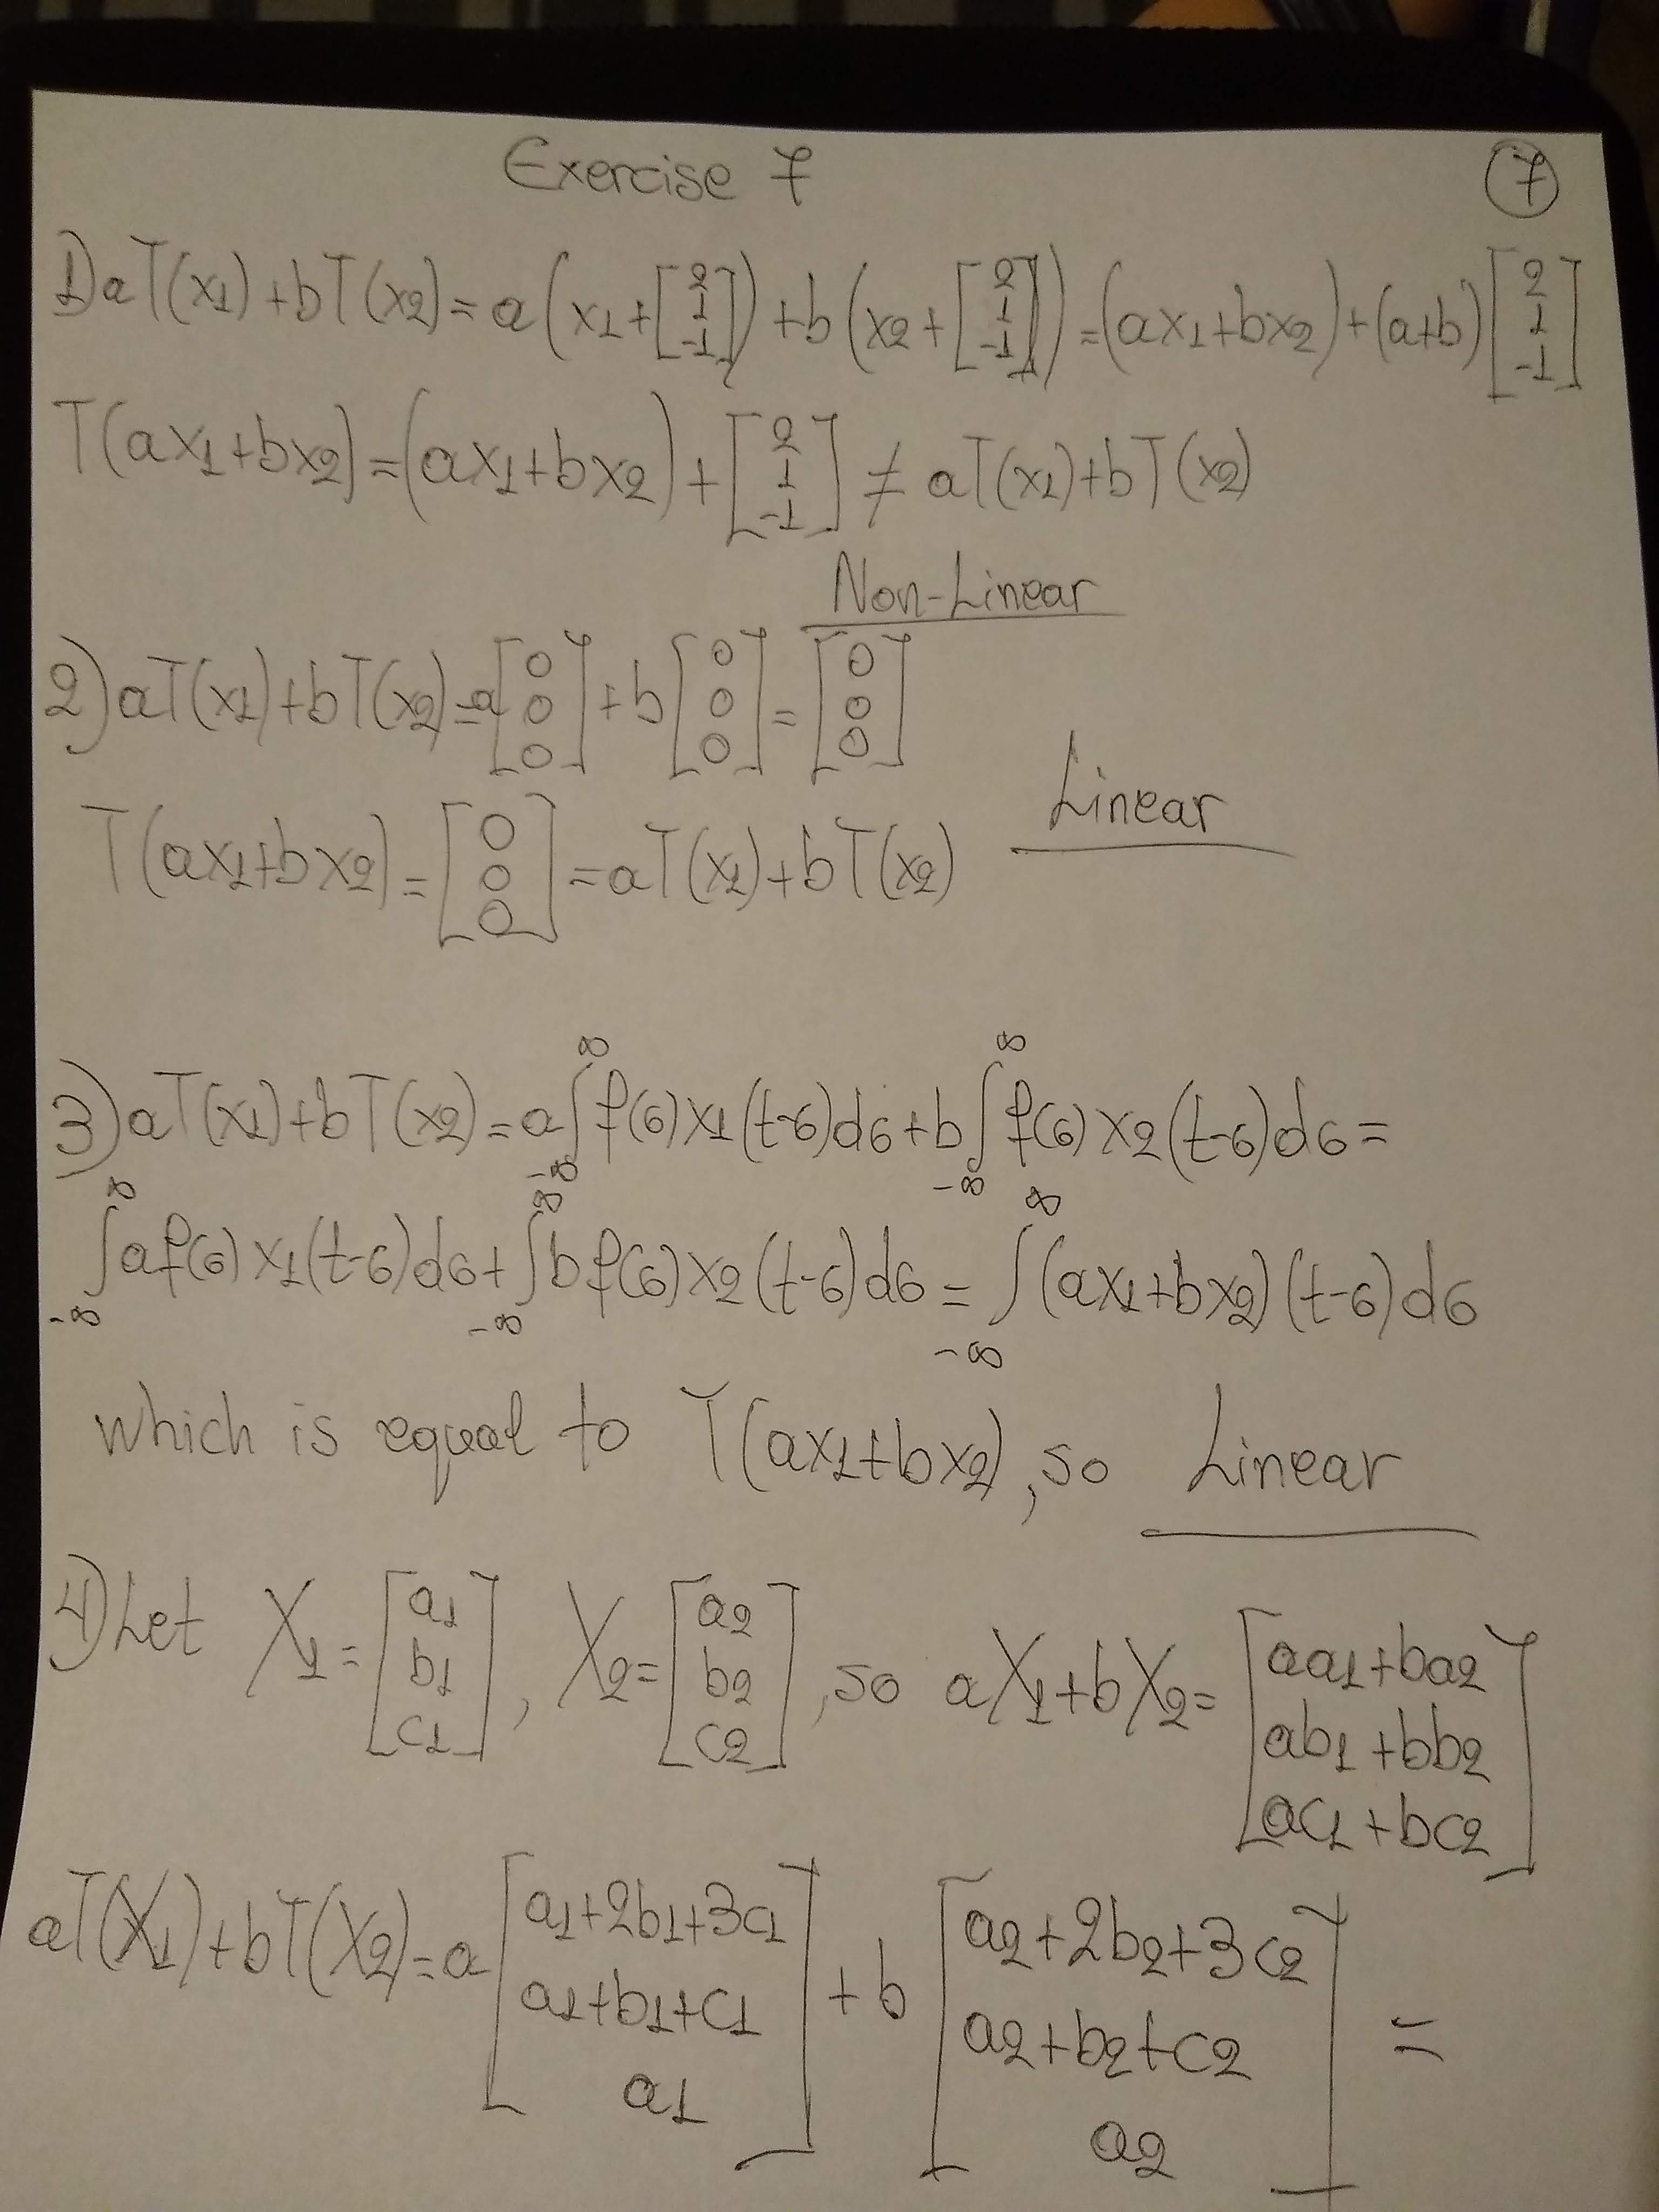 Exercise 7
7
1) aT(x1)+bT(x2)=a(x1+[2 1 -1])+b(x2+[2 1 -1])=(ax1+bx2)+(a+b)[2 1 -1]
T(ax1+bx2)=(ax1+bx2)+[2 1 -1]≠aT(x1)+bT(x2)
Non-Linear
2) aT(x1)+bT(x2)=a[0 0 0]+b[0 0 0]=[0 0 0]
T(ax1+bx2)=[0 0 0]=aT(x1)+bT(x2)
Linear
3) aT(x1)+bT(x2)=a∫_{-∞}^{∞}f(6)x1(t-6)d6+b∫_{-∞}^{∞}f(6)x2(t-6)d6=
∫_{-∞}^{∞}af(6)x1(t-6)d6+∫_{-∞}^{∞}bf(6)x2(t-6)d6=∫_{-∞}^{∞}(ax1+bx2)(t-6)d6
which is equal to T(ax1+bx2), so Linear
4) Let X1=[a1 b1 c1], X2=[a2 b2 c2], so aX1+bX2=[aa1+ba2 ab1+bb2 ac1+bc2]
aT(X1)+bT(X2)=a[a1+2b1+3c1 a1+b1+c1 a1]+b[a2+2b2+3c2 a2+b2+c2 a2]=